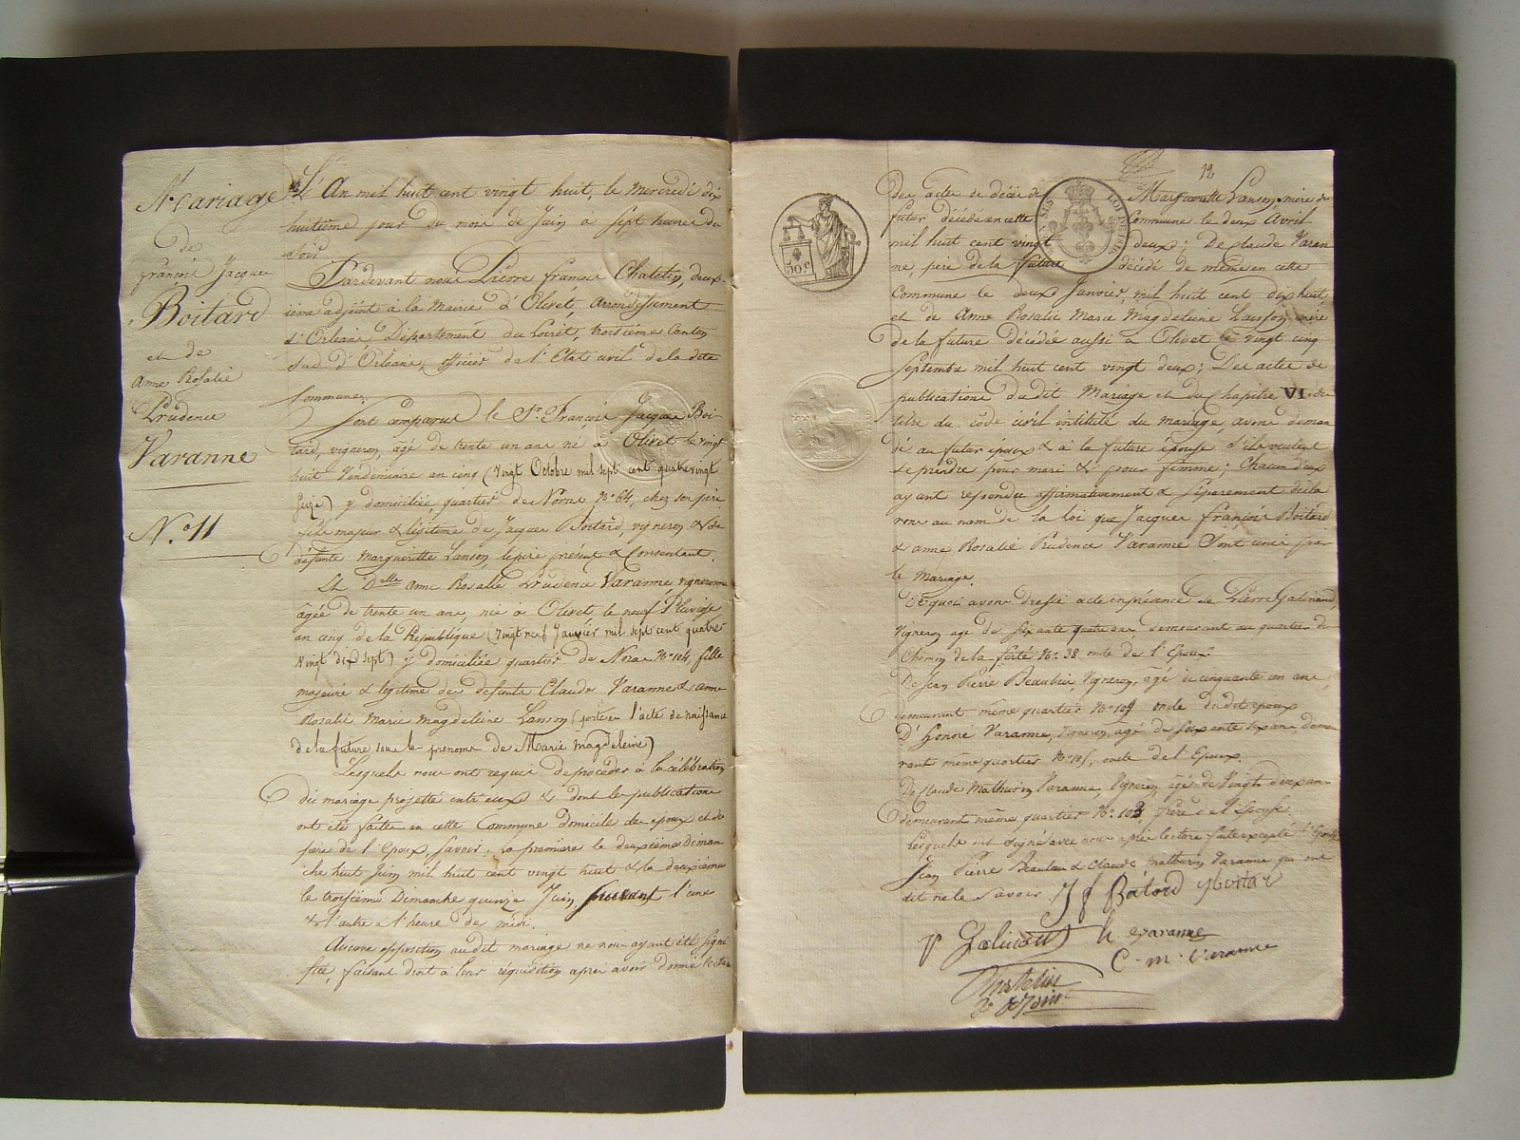 Mariage
de
françois Jacques
Boitard
et de
Anne Rosalie
Prudence
Varanne
N.º 11
L'An mil huit cent vingt huit, le Mercredi dix
huitième jour du mois de Juin à sept heures du
soir
Pardevant nous Pierre françois Chatelin, deux-
ième adjoint à la Mairie d'Olivet, arrondissement
d'Orléans, Département du Loiret, troisième Canton
sud d'Orléans, officier de l'Etat civil de la dite
Commune;
Sont comparus le Sr. François Jacques Boi-
tard, vigneron, âgé de trente un ans né à Olivet le vingt
huit Vendémiaire an cinq (vingt Octobre mil sept cent quatrevingt
seize) y domicilié, quartier de Noras Nº 64, chez son père
fils majeur & légitime de Jacques Boitard, vigneron & de
défunte Margueritte Lanson, le père présent & Consentant.
Et Delle anne Rosalie Prudence Varanne, vigneronne
âgée de trente un ans, née à Olivet le neuf Pluviose
an cinq de la République (vingt neuf Janvier mil sept cent quatre
vingt dix sept) y domiciliée quartier de Noras Nº 104, fille
majeure & légitime de défunts Claude Varanne & anne
Rosalie Marie Magdeleine Lanson (portée en l'acte de naissance
de la future sous les prénoms de Marie Magdeleine)
Lesquels nous ont requis de procéder à la célébration
du mariage projetté entr'eux & dont les publications
ont été faites en cette Commune domicile des époux et du
père de l'Epoux, savoir, la première le deuxième Diman-
che huit Juin mil huit cent vingt huit & la deuxième
le troisième Dimanche quinze Juin, suivant l'une
& l'autre à l'heure de midi.
Aucune opposition au dit mariage ne nous ayant été signi
fiée, faisant droit à leur réquisition après avoir donné lecture
12
Des actes de décès de Margueritte Lanson, mère du
futur décédée en cette Commune le deux Avril
mil huit cent vingt deux; De Claude Varan
ne, père de la future décédé de même en cette
Commune le deux Janvier, mil huit cent dix huit
et de Anne Rosalie Marie Magdeleine Lanson, mère
de la future décédée aussi à Olivet le vingt cinq
Septembre mil huit cent vingt deux; Des actes de
publications du dit Mariage et du Chapitre VI. du
titre du code civil intitulé du mariage, avons deman
dé au futur époux & à la future épouse s'ils veulent
se prendre pour mari & pour femme; Chacun d'eux
ayant répondu affirmativement & séparement décla
rons au nom de la loi que Jacques françois Boitard
& anne Rosalie Prudence Varanne sont unis par
le mariage.
De quoi avons dressé acte en présence de Pierre Galinand,
Vigneron agé de soixante quatre ans demeurant au quartier du
Chemin de la ferté Nº. 38 oncle de l'Epoux
De Jean Pierre Beaulieu, Vigneron, âgé de cinquante un ans
demeurant même quartier Nº 109 oncle du dit epoux
D'Honoré Varanne, Vigneron, agé de soixante six ans deme
rant même quartier Nº 105, oncle de l'Epoux.
De Claude Mathurin Varanne, Vigneron âgé de Vingt deux ans
demeurant même quartier Nº. 103, frère de l'Epouse
Lesquels ont signé avec nous après lecture faite excepté l'Epouse
Jean Pierre Beaulieu & Claude Mathurin Varanne qui ont
dit ne le savoir J f Bôtard Jboitar
P Galinand h Varanne
C. m. Varanne
Chatelin
2e adjoint